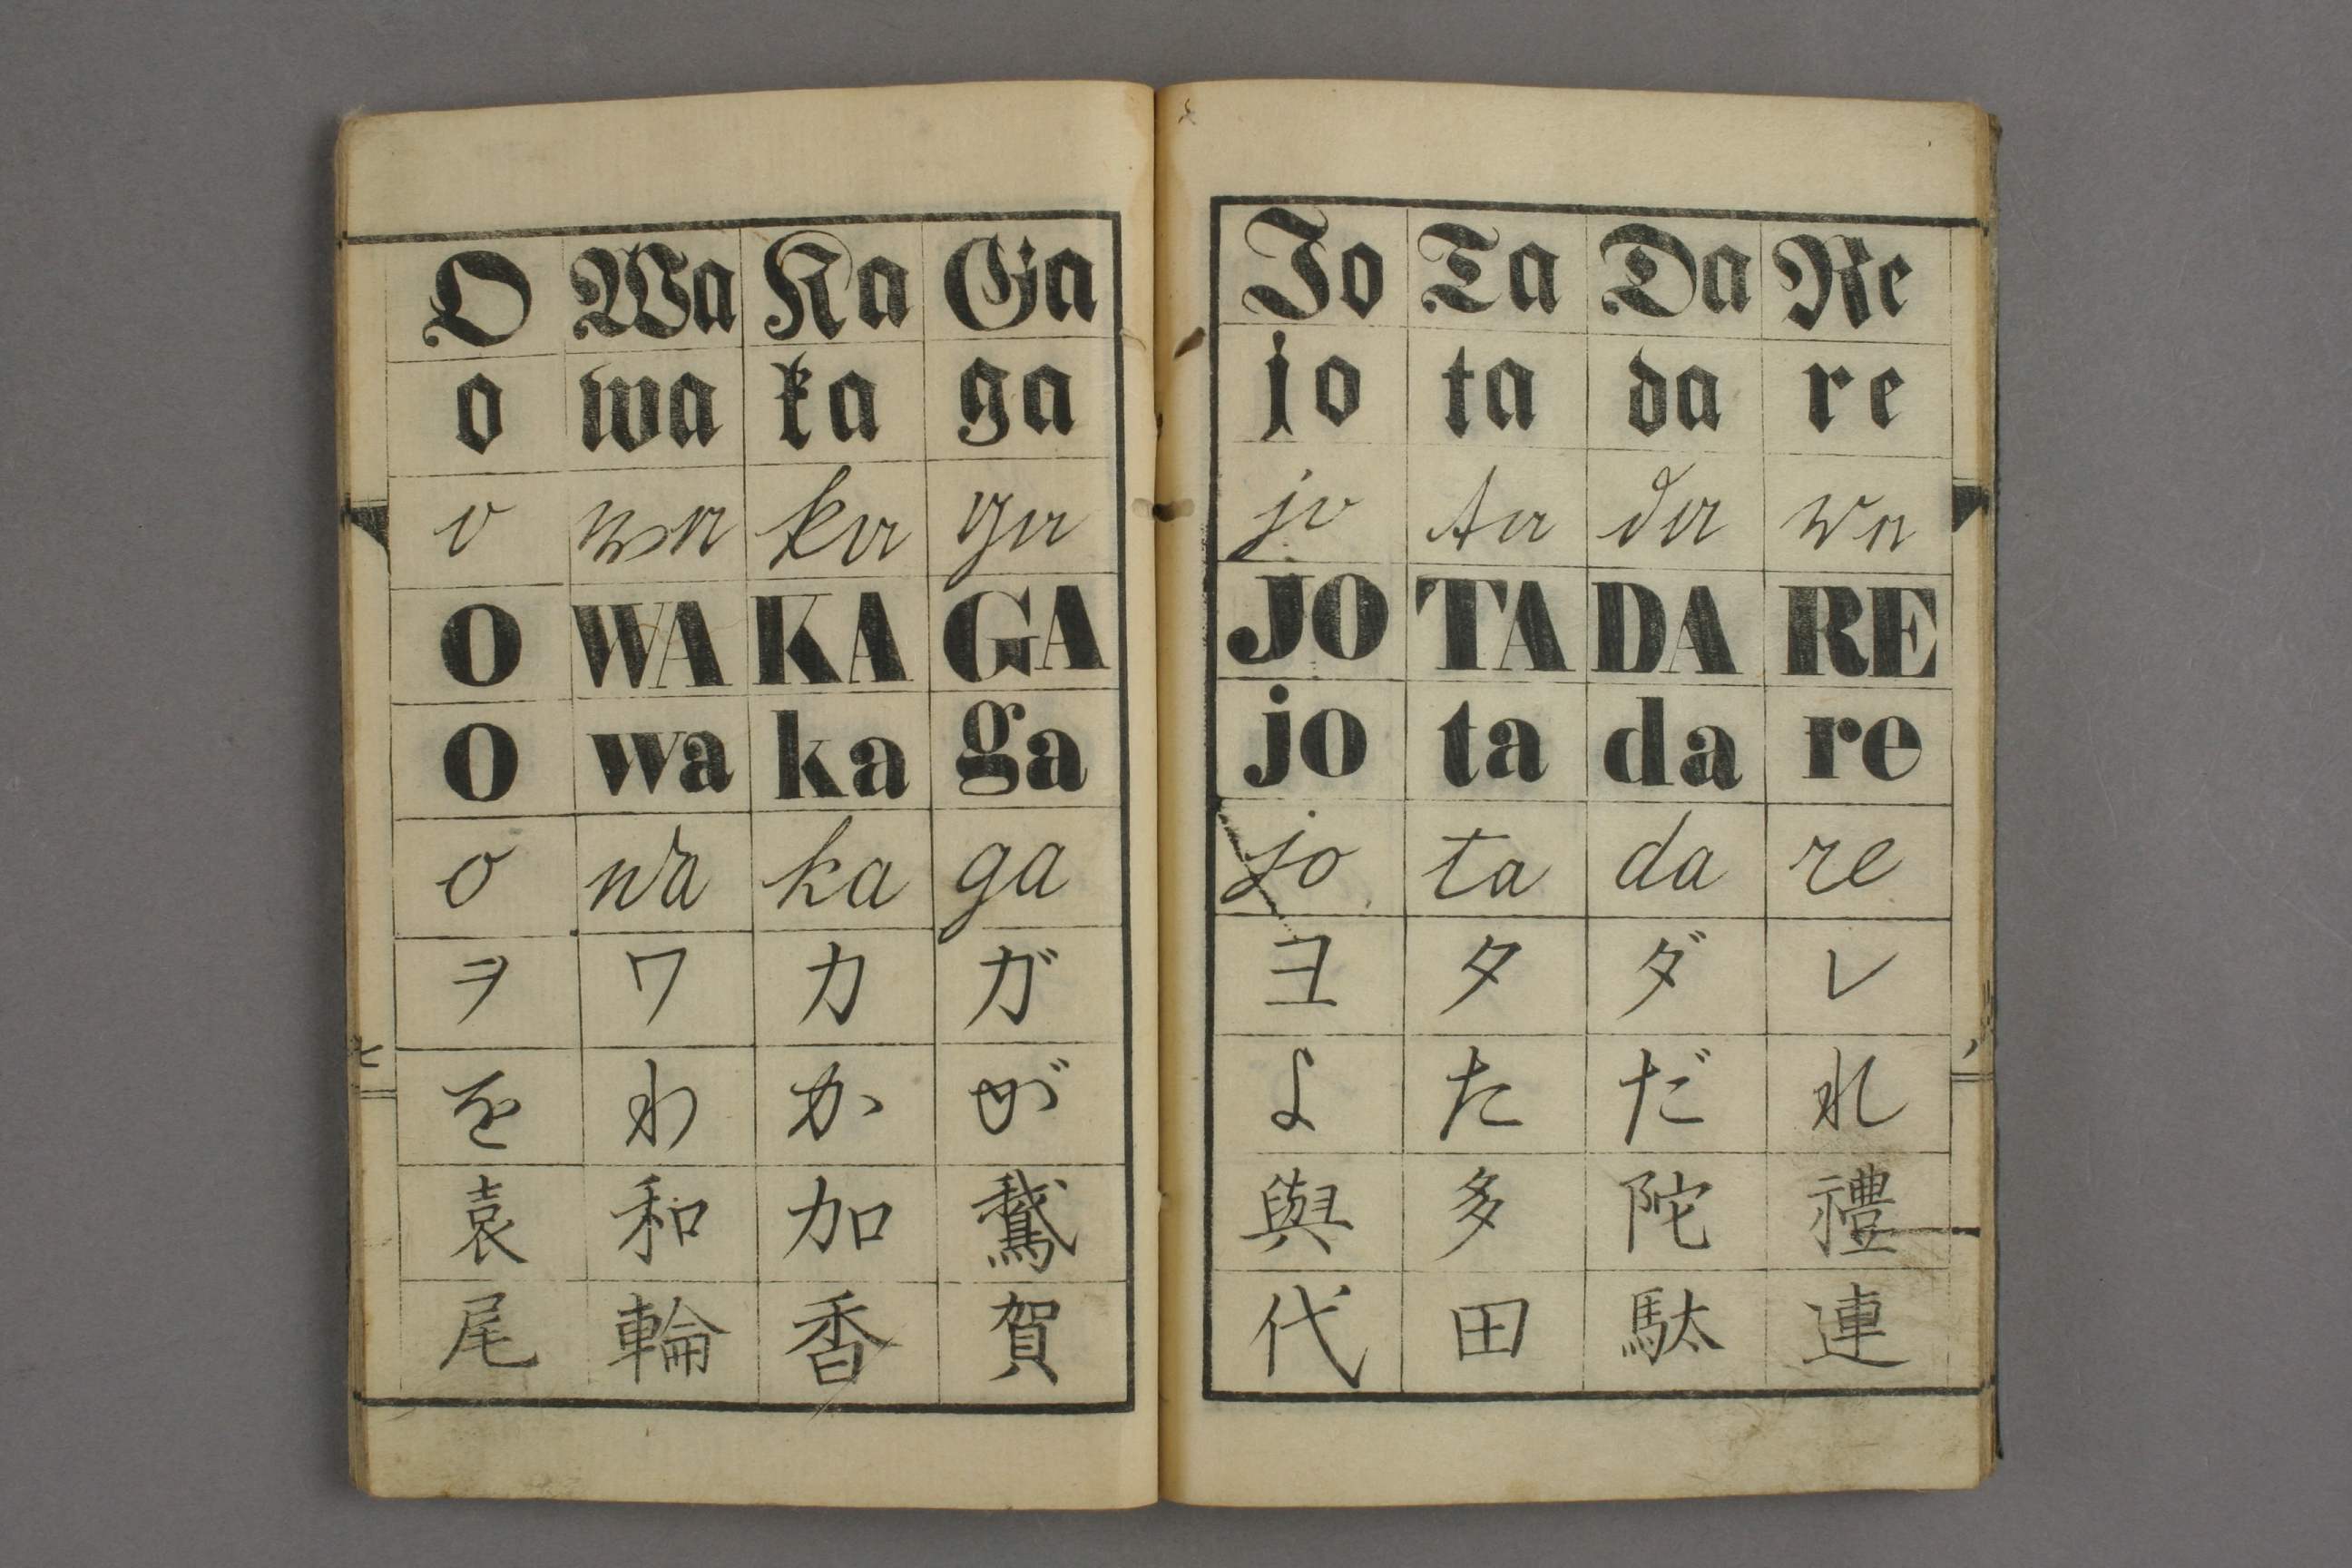 O Wa Ka Ga
o wa ka ga
o wa ka ga
O WA KA GA
o wa ka ga
o wa ka ga
ヲ ワ カ ガ
を わ か が
袁 和 加 鵞
尾 輪 香 賀
七
Jo Ta Da Re
jo ta da re
jo ta da re
JO TA DA RE
jo ta da re
jo ta da re
ヨ タ ダ レ
よ た だ れ
與 多 陀 禮
代 田 駄 連